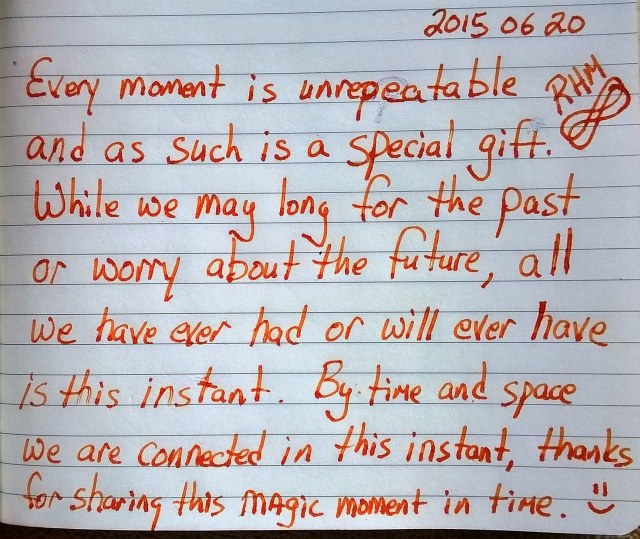 2015 06 20
Every moment is unrepeatable RHM
and as such is a special gift.
While we may long for the past
or worry about the future, all
we have ever had or will ever have
is this instant. By time and space
we are connected in this instant, thanks
for sharing this magic moment in time.